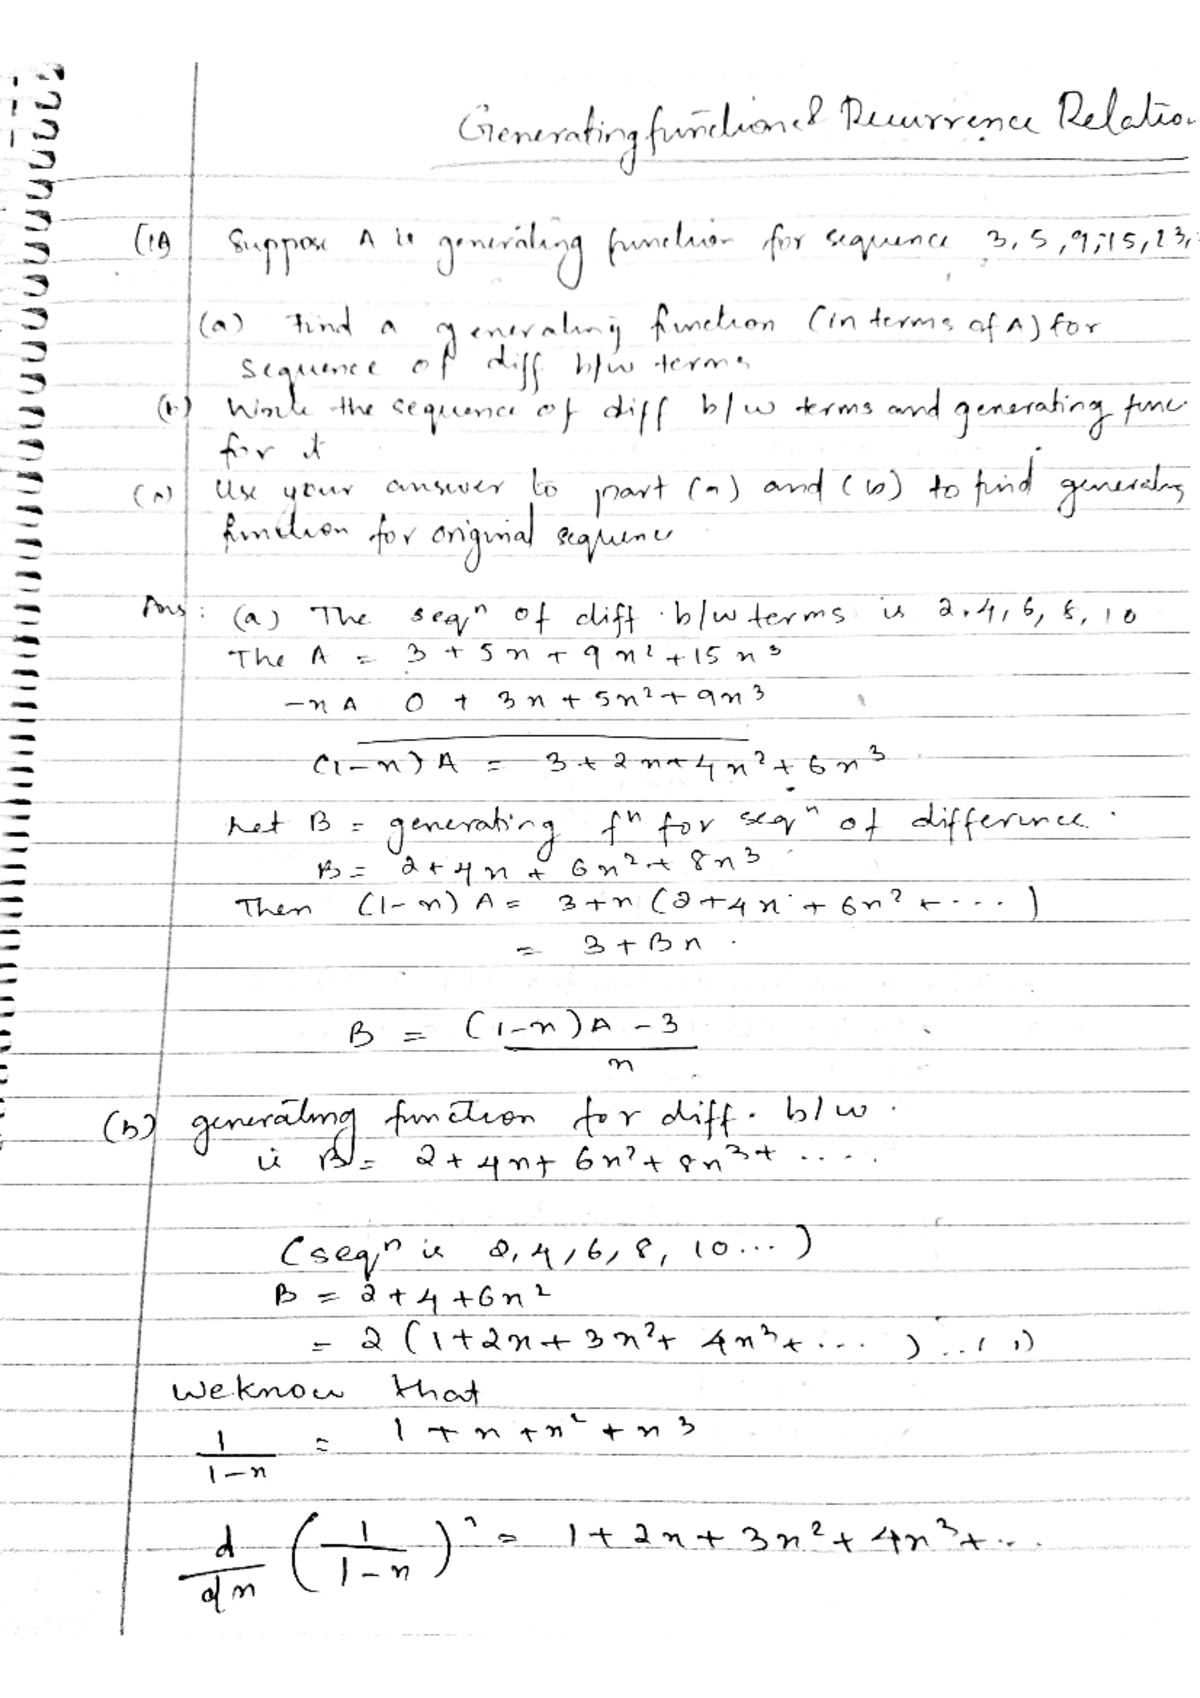 Generating function & Recurrence Relatio
(1) Suppose A is generating function for sequence 3, 5, 9, 15, 23,
(a) Find a generating function (in terms of A) for
sequence of diff b/w terms
(b) Write the sequence of diff b/w terms and generating func
for it
(c) Use your answer to part (a) and (b) to find generating
function for original sequence
Ans: (a) The seqⁿ of diff b/w terms is 2, 4, 6, 8, 10
The A = 3 + 5x + 9x² + 15x³
-xA 0 + 3x + 5x² + 9x³
(1-x)A = 3 + 2x + 4x² + 6x³
Let B = generating fⁿ for seqⁿ of difference.
B = 2 + 4x + 6x² + 8x³
Then (1-x)A = 3 + x(2 + 4x + 6x² + ....)
= 3 + Bx.
B = (1-x)A - 3
x
(b) generating function for diff. b/w.
is B = 2 + 4x + 6x² + 8x³ + .....
(seqⁿ is 2, 4, 6, 8, 10...)
B = 2 + 4 + 6x²
= 2 (1 + 2x + 3x² + 4x³ + ....) ..(1)
We know that
1/(1-x) = 1 + x + x² + x³
d/dx (1/(1-x))² = 1 + 2x + 3x² + 4x³ + ...